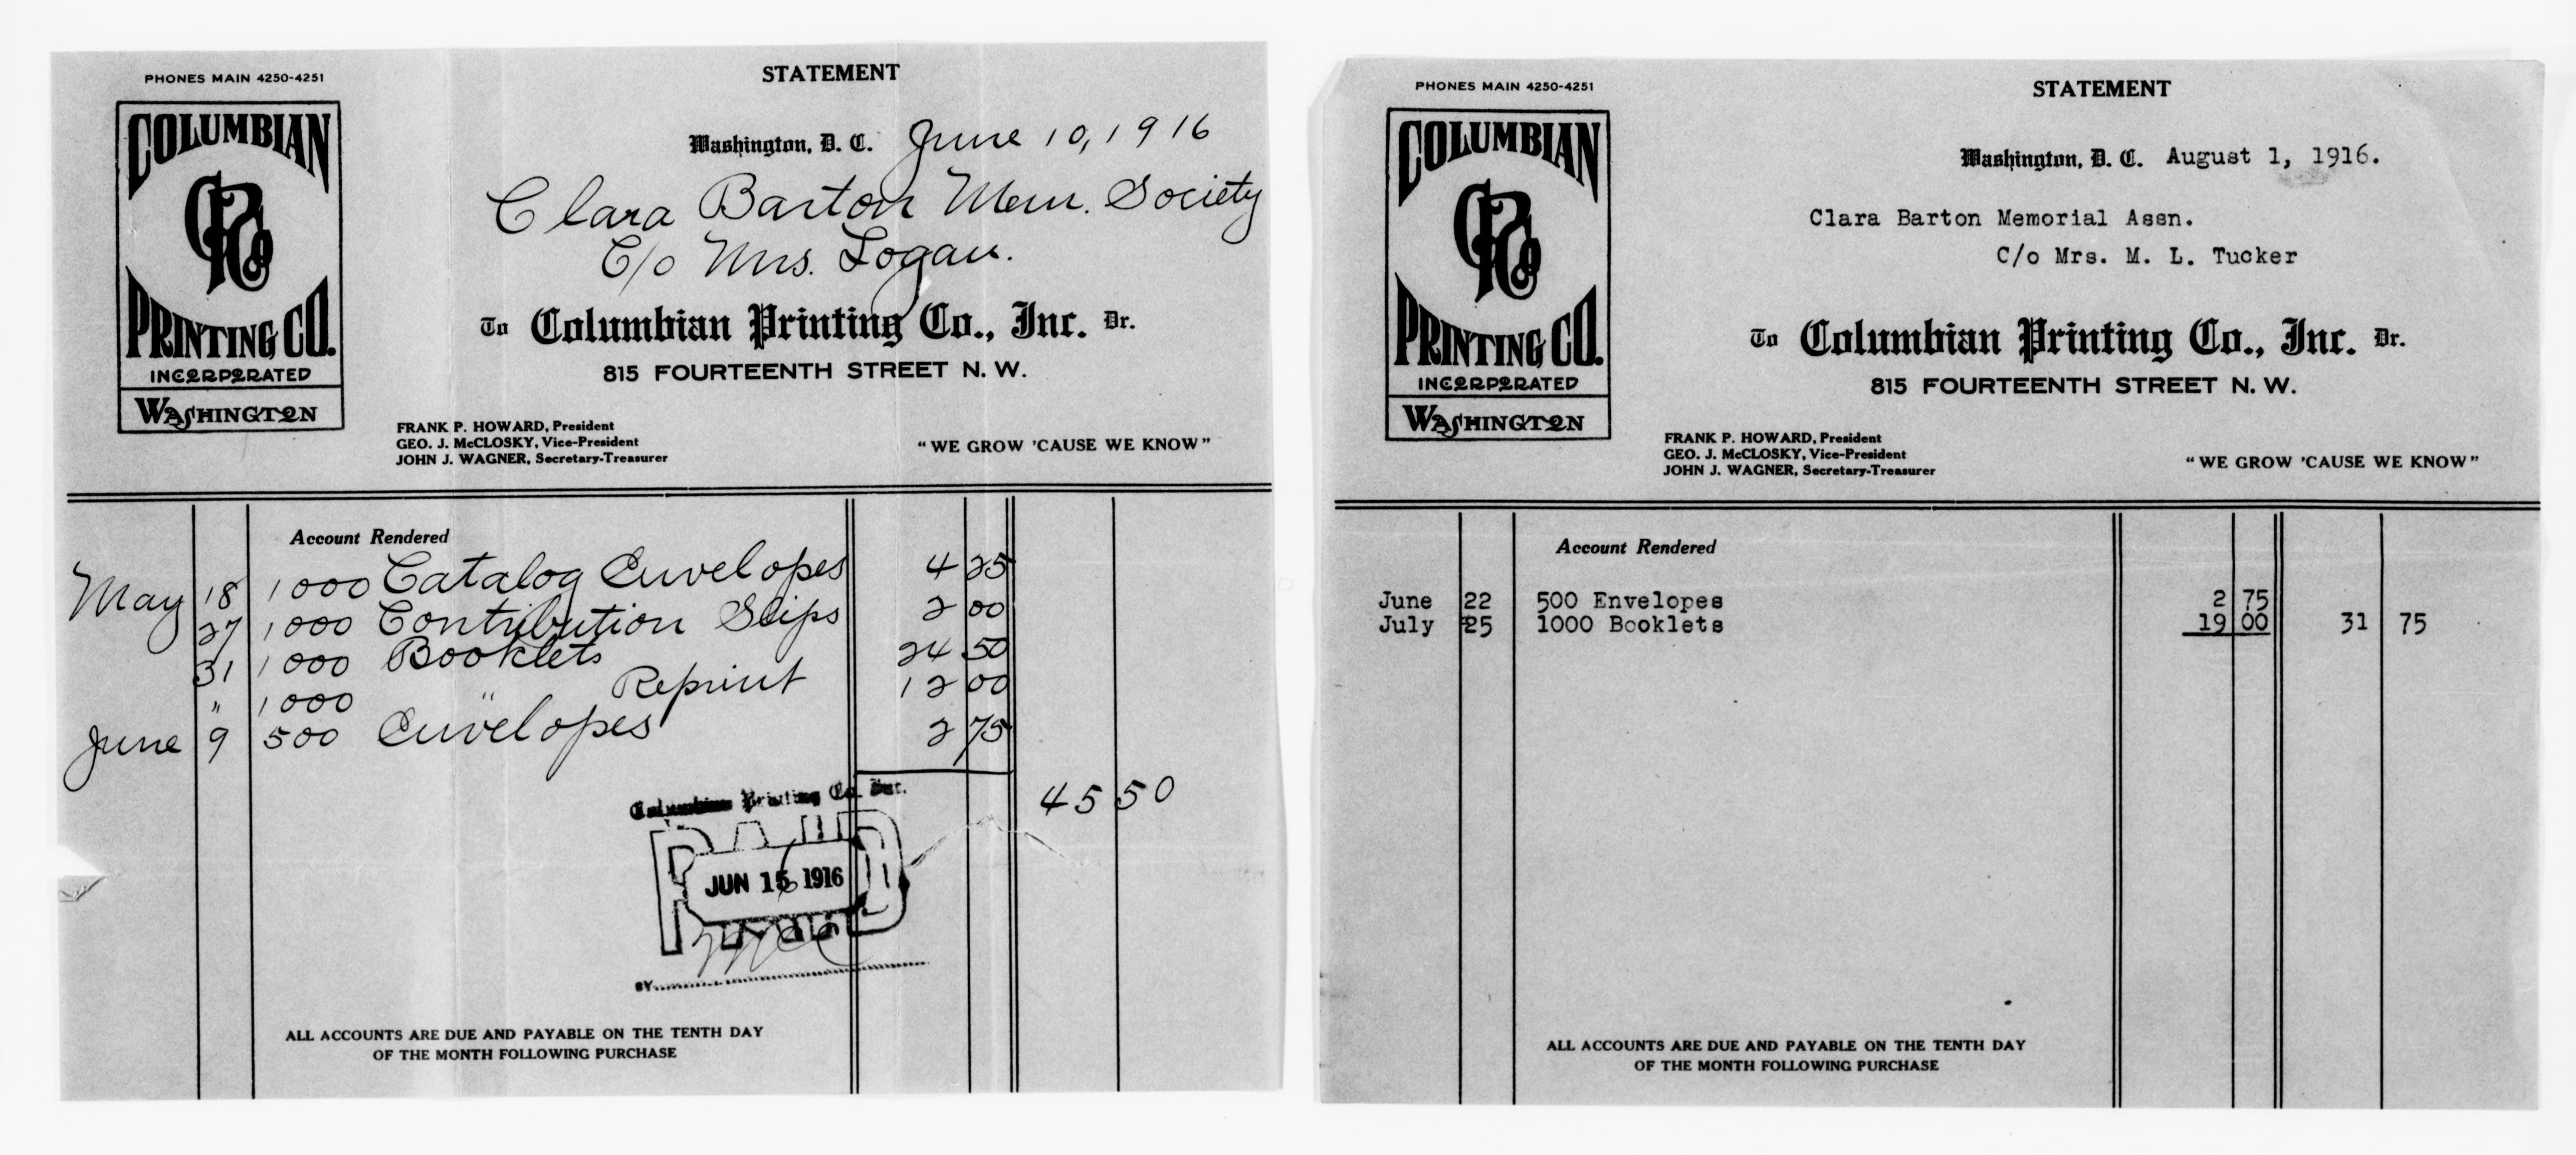 PHONES MAIN 4250-4251
COLUMBIAN
CPCo
PRINTING CO.
INCORPORATED
WASHINGTON
STATEMENT
Washington, D. C. June 10, 1916
Clara Barton Mem. Society
C/o Mrs. Logan.
To Columbian Printing Co., Inc. Dr.
815 FOURTEENTH STREET N. W.
FRANK P. HOWARD, President
GEO. J. McCLOSKY, Vice-President
JOHN J. WAGNER, Secretary-Treasurer
"WE GROW 'CAUSE WE KNOW"
Account Rendered
May 18 1000 Catalog Envelopes 4 25
27 1000 Contribution Slips 2 00
31 1000 Booklets 24 50
" 1000 " Reprint 12 00
June 9 500 Envelopes 2 75
45 50
Columbian Printing Co. Inc.
PAID
JUN 15 1916
BY
ALL ACCOUNTS ARE DUE AND PAYABLE ON THE TENTH DAY
OF THE MONTH FOLLOWING PURCHASE
PHONES MAIN 4250-4251
COLUMBIAN
CPCo
PRINTING CO.
INCORPORATED
WASHINGTON
STATEMENT
Washington, D. C. August 1, 1916.
Clara Barton Memorial Assn.
C/o Mrs. M. L. Tucker
To Columbian Printing Co., Inc. Dr.
815 FOURTEENTH STREET N. W.
FRANK P. HOWARD, President
GEO. J. McCLOSKY, Vice-President
JOHN J. WAGNER, Secretary-Treasurer
"WE GROW 'CAUSE WE KNOW"
Account Rendered
June 22 500 Envelopes 2 75
July 25 1000 Booklets 19 00 31 75
ALL ACCOUNTS ARE DUE AND PAYABLE ON THE TENTH DAY
OF THE MONTH FOLLOWING PURCHASE